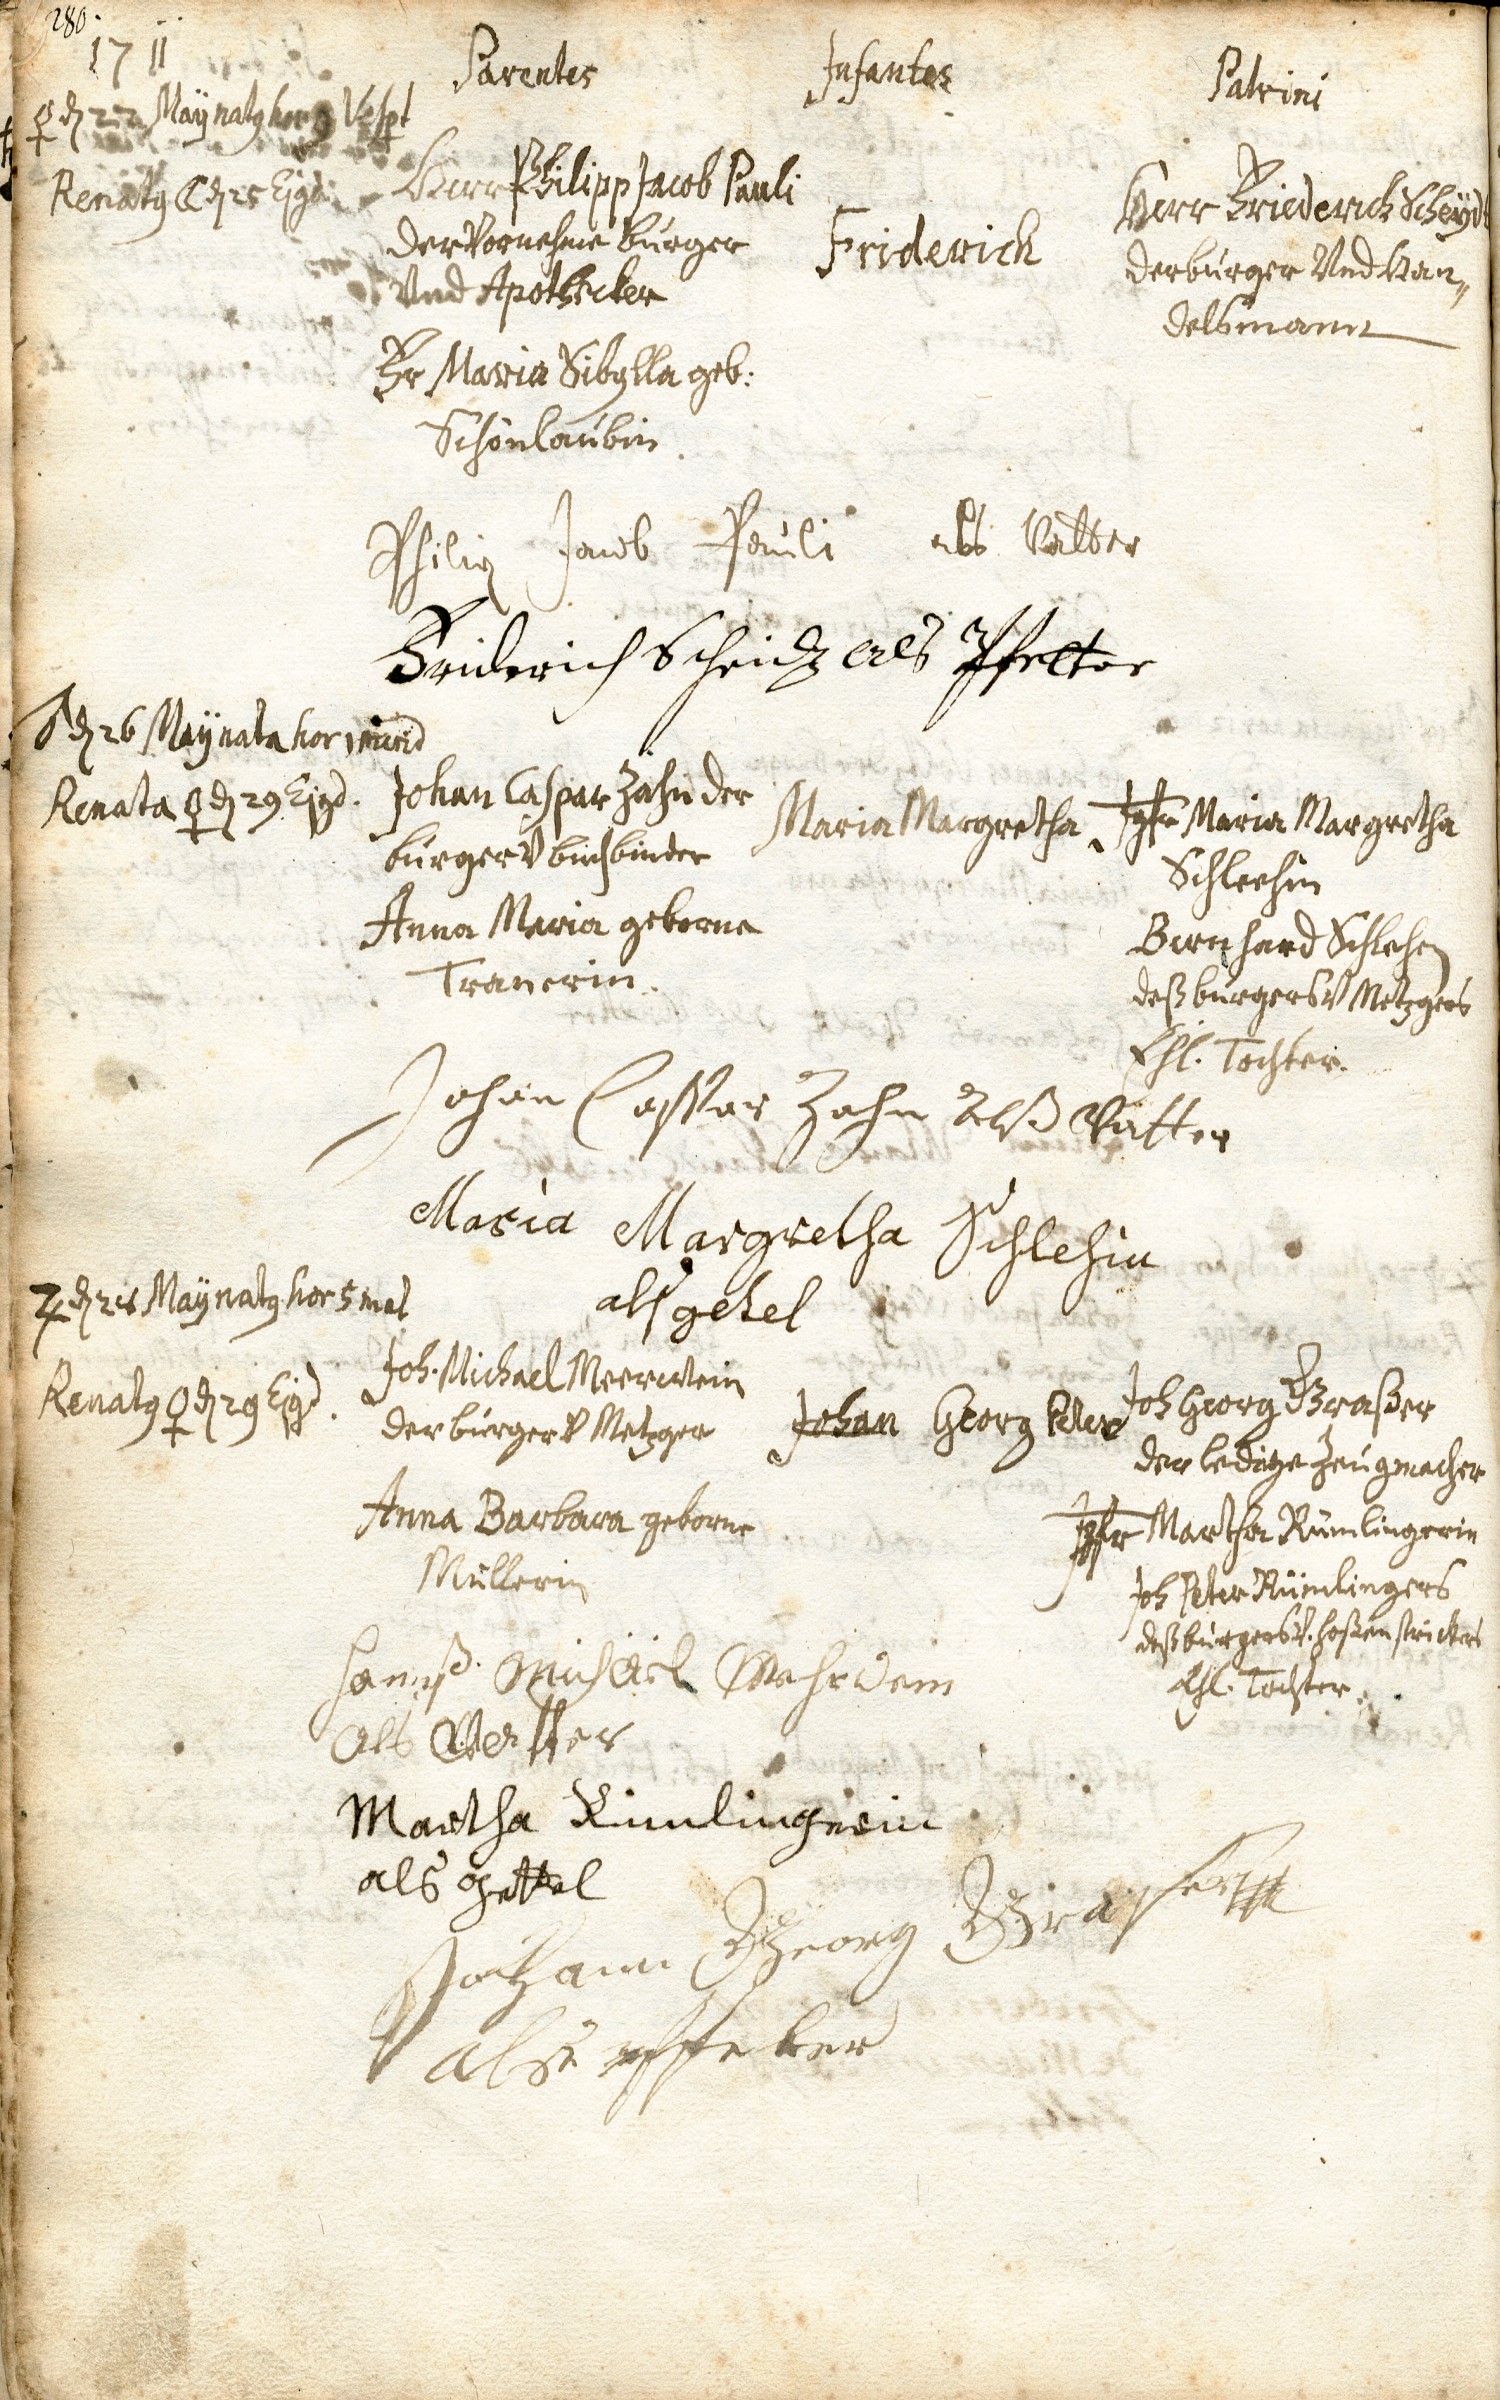 280.
1711
Parentes
Infantes
Patrini
♀ d 22 Maÿ natg hor 9 Vesp̄t
Renatg ☾ d 25 Ejgd.
Herr Philipp Jacob Pauli
der Vornehme burger
Vnd Apothecker
Fr Maria Sibylla geb:
Schönlaubin.
Friderich
Herr Friederich Scheÿdt
der burger Vnd Han„
delsmann
Philip Jacob Pauli als Vatter
Friderich Scheidt als Pfetter
♂ d 26 Maÿ nata hor 1
Renata ♀ d 29 Ejgd.
Johan Caspar Zahn der
burger V buchbinder
Anna Maria geborne
Tranerin.
Maria Margretha
Jgfr Maria Margretha
Schleehin
Bernhard Schlehen
deß burgers V Metzgers
Ehl. Tochter.
Johan Casper Zahn alß Vatter
Maria Margretha Schlehin
alß getel
♃ d 28 Maÿ natg hor 5 mat
Renatg ♀ d 29 Ejgd.
Joh. Michael Meerwein
der burger V Metzger
Anna Barbara geborne
Müllerin
Johan Georg Peter
Joh Georg Graßer
der ledige Zeugmacher
Jgfr Martha Rümlingerin
Joh Peter Rümlingers
deß burgers V. hoßenstrickers
Ehl. Tochter.
Hannß Michael Mehrwein
als Vatter
Martha Rimlingerin
als gettel
Johann Georg Graßer
alß pfetter